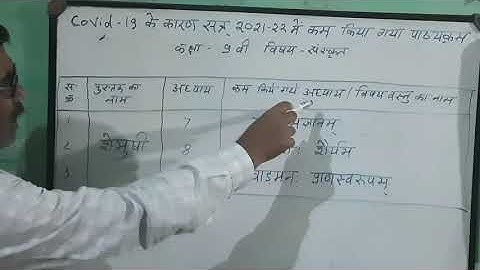 Covid-19 के कारण सत्र 2021-22 में कम किया गया पाठ्यक्रम
कक्षा - 9 वी विषय - संस्कृत
स. क्र पुस्तक का नाम अध्याय कम किये गये अध्याय / विषय वस्तु का नाम
1 7
2 शेमुषी 8 शैर्यम
3 वाडमनः प्राणस्वरूपम्